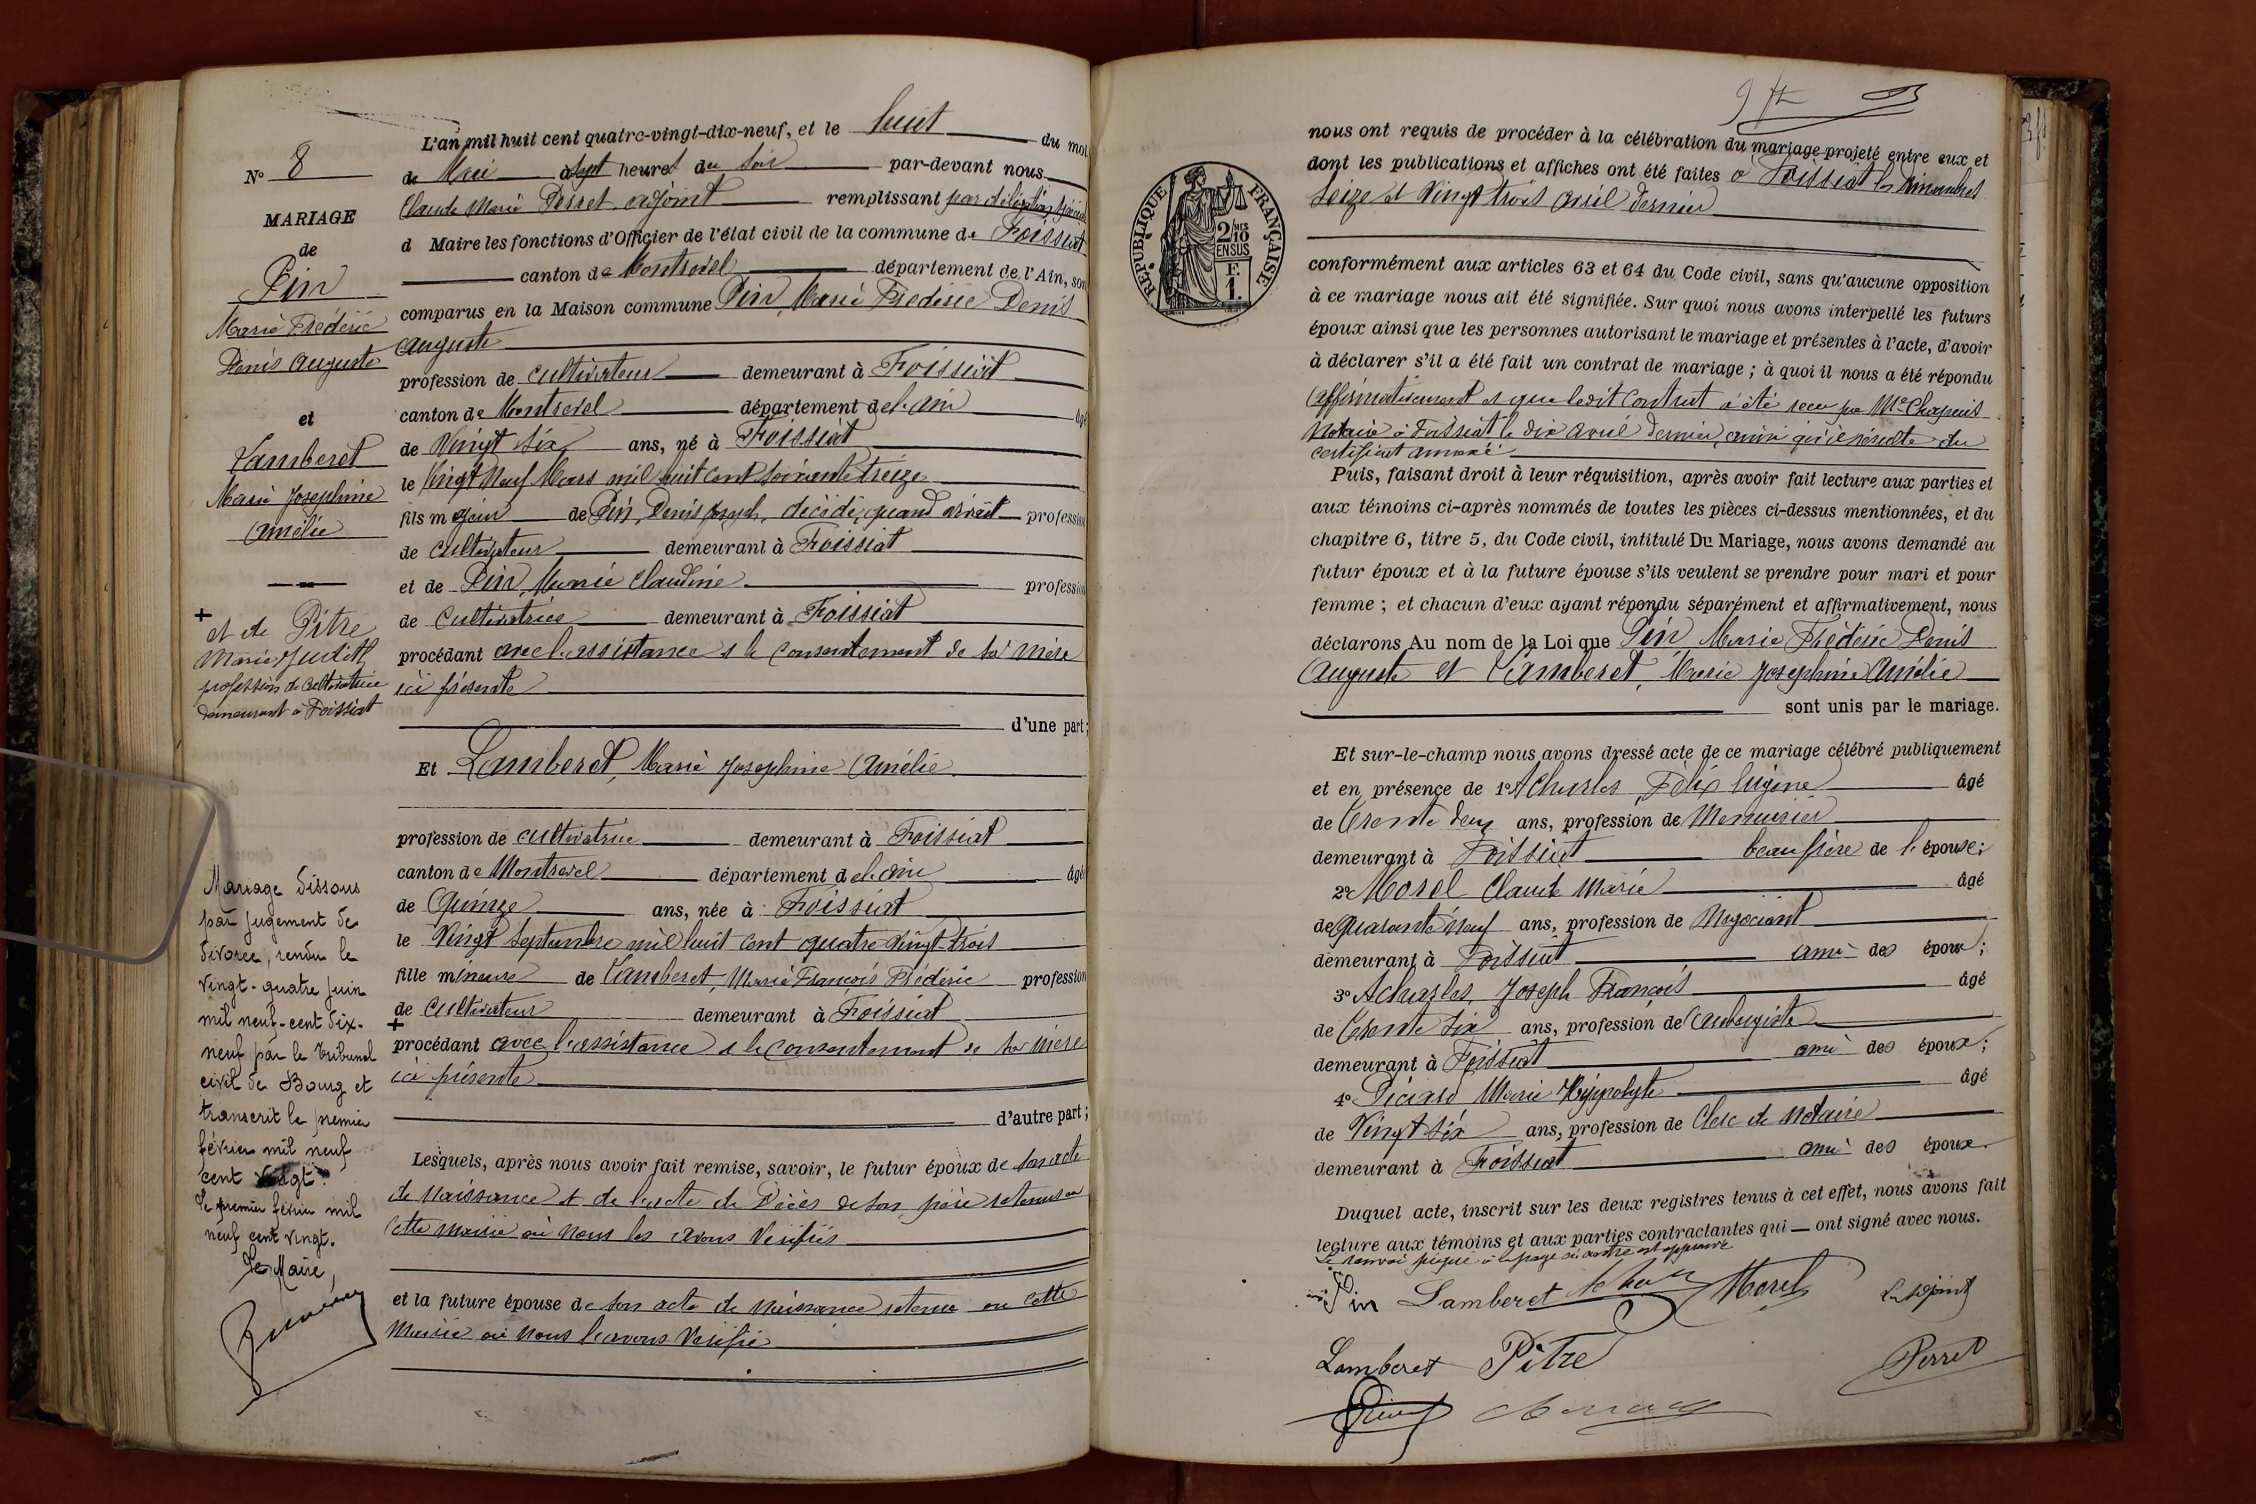 N° 8
MARIAGE
de
Pin
Marie Frédéric
Denis Auguste
et
Lamberet
Marie Josephine
Amélie
+
et de Pitre
Marie Judith
profession de cultivatrice
demeurant à Foissiat
Mariage dissous
par jugement de
divorce, rendu le
vingt-quatre juin
mil neuf-cent dix-
neuf par le tribunal
civil de Bourg et
transcrit le premier
février mil neuf
cent vingt.
Le premier février mil
neuf cent vingt.
Le Maire,
L'an mil huit cent quatre-vingt-dix-neuf, et le huit du moi
de Mai à sept heures du soir par-devant nous
Claude Marie Perret adjoint remplissant par délégation spéciale
d Maire les fonctions d'Officier de l'état civil de la commune de Foissiat
canton de Montrevel département de l'Ain, son
comparus en la Maison commune Pin, Marie Frédéric Denis
Auguste
profession de cultivateur demeurant à Foissiat
canton de Montrevel département de l'ain âgé
de Vingt six ans, né à Foissiat
le Vingt Neuf Mars mil huit cent soixante treize
fils majeur de Pin, Denis Joseph, décédé, quand vivait profession
de cultivateur demeurant à Foissiat
et de Pin, Marie Claudine profession
de cultivatrice demeurant à Foissiat
procédant avec l'assistance & le consentement de sa mère
ici présente
d'une part;
Et Lamberet, Marie Josephine Amélie
profession de cultivatrice demeurant à Foissiat
canton de Montrevel département de l'ain âgée
de Quinze ans, née à Foissiat
le Vingt Septembre mil huit cent quatre vingt-trois
fille mineure de Lamberet, Marie François Frédéric profession
de cultivateur demeurant à Foissiat
+
procédant avec l'assistance & le consentement de sa mère
ici présente
d'autre part;
Lesquels, après nous avoir fait remise, savoir, le futur époux de son acte
de Naissance & de l'acte de Décès de son père retenus en
cette mairie où nous les avons Vérifiés
et la future épouse de son acte de Naissance retenu en cette
Mairie où nous l'avons Vérifié
RÉPUBLIQUE FRANÇAISE
2/10
EN SUS
F.
1.
nous ont requis de procéder à la célébration du mariage projeté entre eux et
dont les publications et affiches ont été faites à Foissiat les Dimanches
seize et Vingt trois avril dernier
conformément aux articles 63 et 64 du Code civil, sans qu'aucune opposition
à ce mariage nous ait été signifiée. Sur quoi nous avons interpellé les futurs
époux ainsi que les personnes autorisant le mariage et présentes à l'acte, d'avoir
à déclarer s'il a été fait un contrat de mariage; à quoi il nous a été répondu
affirmativement et que ledit contrat a été reçu par Me Chapuis
Notaire à Foissiat le dix avril dernier, ainsi qu'il résulte du
certificat annexé
Puis, faisant droit à leur réquisition, après avoir fait lecture aux parties et
aux témoins ci-après nommés de toutes les pièces ci-dessus mentionnées, et du
chapitre 6, titre 5, du Code civil, intitulé Du Mariage, nous avons demandé au
futur époux et à la future épouse s'ils veulent se prendre pour mari et pour
femme; et chacun d'eux ayant répondu séparément et affirmativement, nous
déclarons Au nom de la Loi que Pin Marie Frédéric Denis
Auguste et Lamberet, Marie Josephine Amélie
sont unis par le mariage.
Et sur-le-champ nous avons dressé acte de ce mariage célébré publiquement
et en présence de 1° Acharles, Félix Eugène âgé
de trente deux ans, profession de Menuisier
demeurant à Foissiat beau frère de l'épouse;
2° Morel Claude Marie âgé
de quarante neuf ans, profession de Négociant
demeurant à Foissiat ami des époux;
3° Acharles, Joseph François âgé
de trente six ans, profession de Aubergiste
demeurant à Foissiat ami des époux;
4° Marie Hyppolyte âgé
de Vingt six ans, profession de Clerc de Notaire
demeurant à Foissiat ami des époux.
Duquel acte, inscrit sur les deux registres tenus à cet effet, nous avons fait
lecture aux témoins et aux parties contractantes qui ont signé avec nous.
Le renvoi piqué à la page ci contre est approuvé
Pin Lamberet Morel L'adjoint
Lamberet Pitre Perret